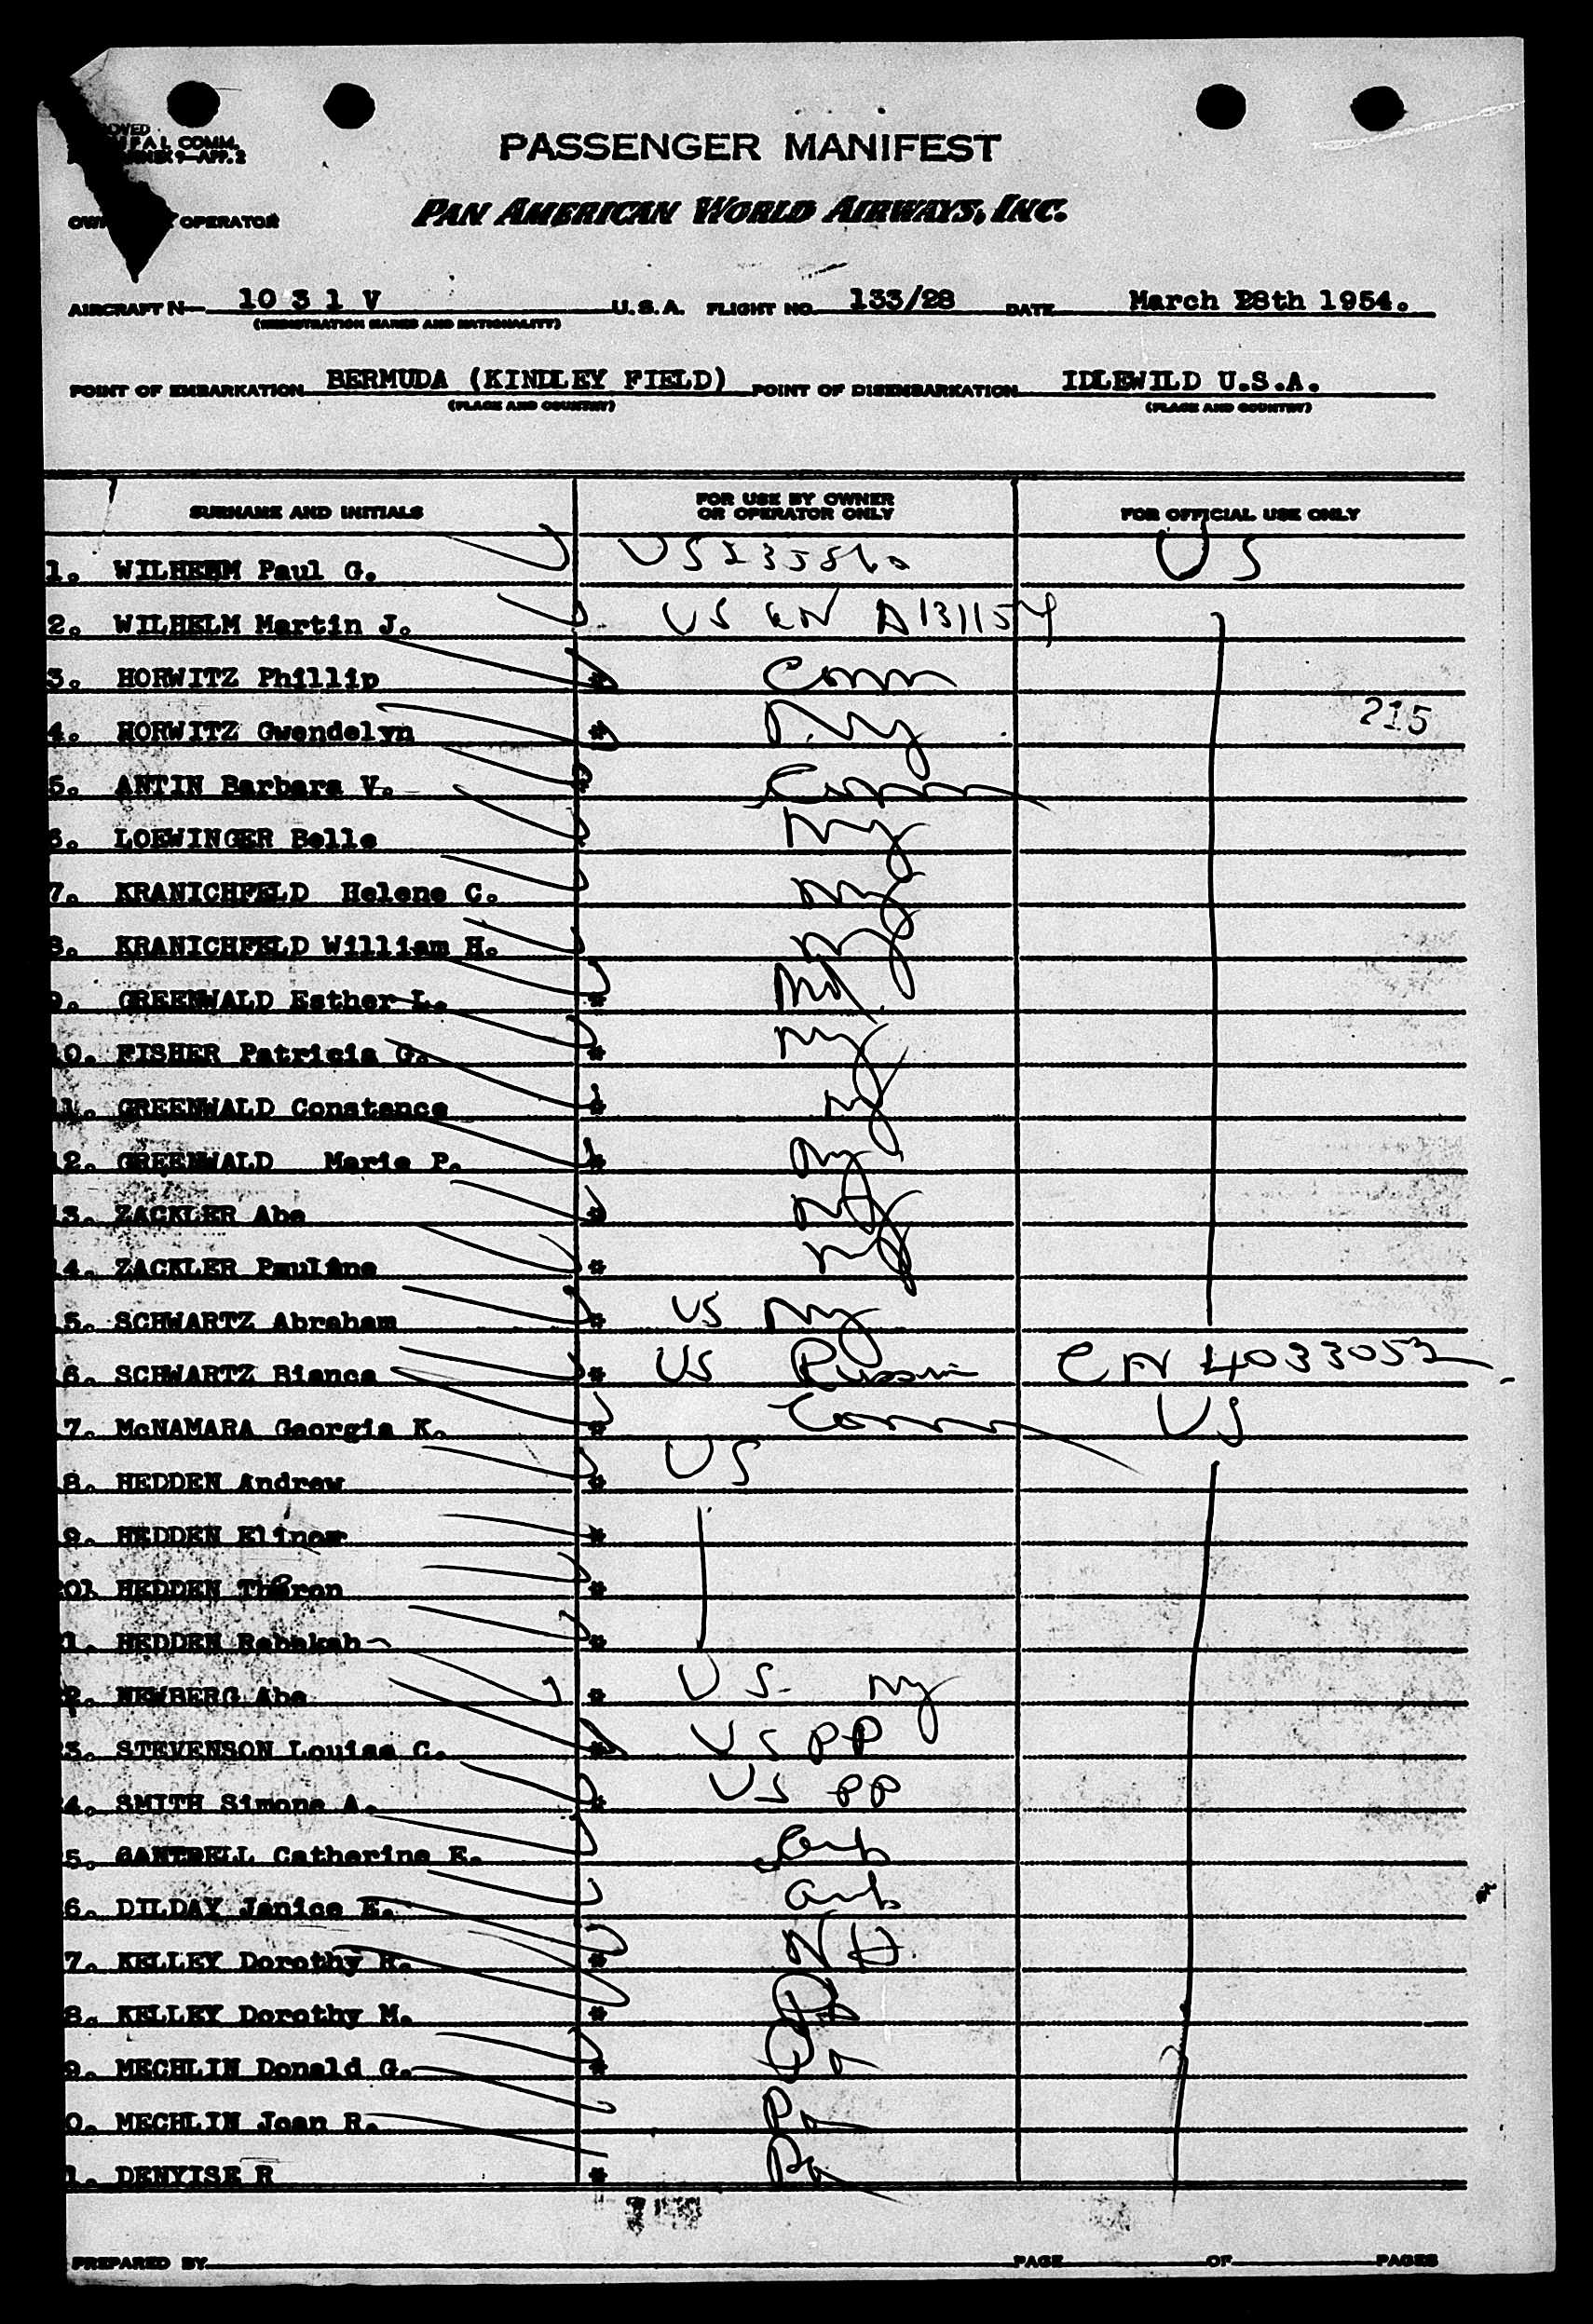 OPERATOR
PASSENGER MANIFEST
PAN AMERICAN WORLD AIRWAYS, INC.
AIRCRAFT N— 10 3 1 V U.S.A. FLIGHT NO. 133/28 DATE March 28th 1954.
(REGISTRATION MARKS AND NATIONALITY)
POINT OF EMBARKATION BERMUDA (KINDLEY FIELD) POINT OF DISEMBARKATION IDLEWILD U.S.A.
(PLACE AND COUNTRY) (PLACE AND COUNTRY)
SURNAME AND INITIALS FOR USE BY OWNER OR OPERATOR ONLY FOR OFFICIAL USE ONLY
1. WILHELM Paul G. US US
2. WILHELM Martin J. US A131154
3. HORWITZ Phillip * Conn
215
4. HORWITZ Gwendelyn * NY
5. ANTIN Barbara V. * Conn
6. LOEWINGER Belle NY
7. KRANICHFELD Helene C. NY
8. KRANICHFELD William H. NY
9. GREENWALD Esther L. *
10. FISHER Patricia G. * NY
11. GREENWALD Constance * NY
12. GREENWALD Marie P. * NY
13. ZACKLER Abe * NY
14. ZACKLER Pauline * NY
15. SCHWARTZ Abraham * US NY
16. SCHWARTZ Bianca * US Russia CN 4033053
17. McNAMARA Georgia K. * Conn US
18. HEDDEN Andrew * US
19. HEDDEN Elinor *
20. HEDDEN Theron *
21. HEDDEN Rebekah *
22. NEWBERG Abe * US NY
23. STEVENSON Louise C. * US PP
24. SMITH Simone A. * US PP
25. CANTRELL Catherine E. Ark
26. DILDAY Janice E. Ark
27. KELLEY Dorothy R. * NH
28. KELLEY Dorothy M. *
29. MECHLIN Donald G. * Pa
30. MECHLIN Joan R. Pa
31. DENYISE R * Pa
PREPARED BY PAGE OF PAGES